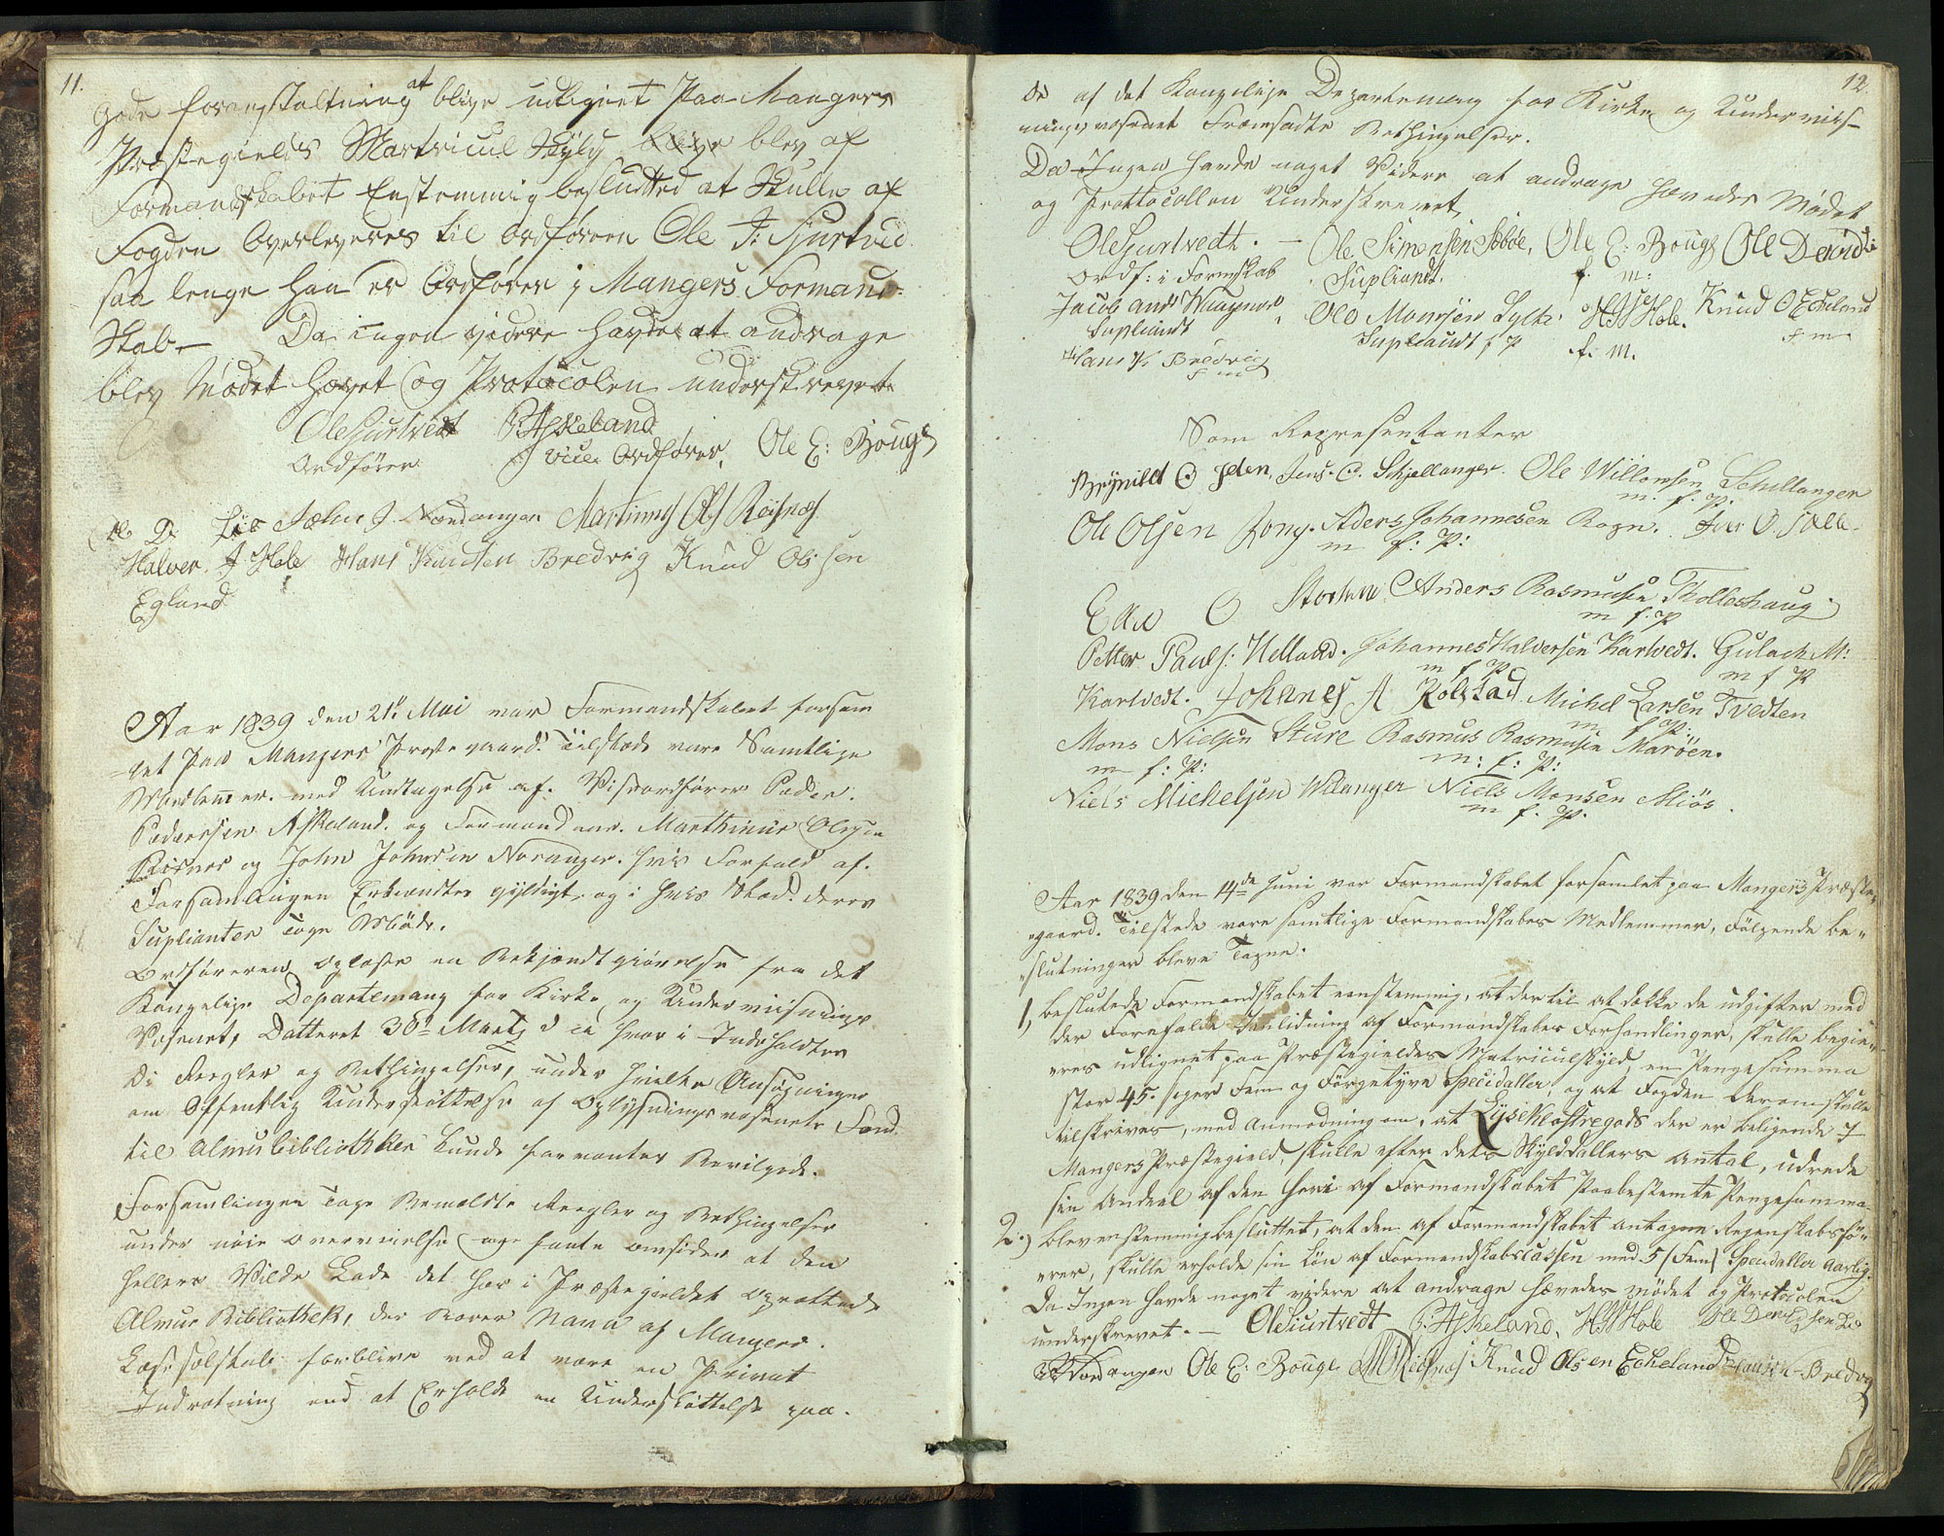 11.
gode foranstaltning at blive udlignet Paa Mangers
Præstegields Martricul Skyly blive blev af
Formandskabet Enstemmig beslutted at Skulle af
Fogden Overleveres til Ordføren Ole J: Sjurtved
saa lenge han er Ordfører i Mangers Formand-
Skab— Da ingen videre havde at andrage
blev Mødet hævet og Protocolen underskrevet
Ole Sjurtvedt P Askeland
Ordfører vice Ordfører, Ole E: Bouge
Ole D. Lie John J. Nordanger Martinus Ols Risnes
Halver J Hole Hans Knuten Bredvig Knud Olssen
Egland
Aar 1839 den 21de Mai var Formandskabet forsam
let Paa Mangers Prestegaard. Tilstede vare Samtlige
Medlemer. med Undtagelse af. Viseordfører Peder.
Pederssen Askeland. og Formændene. Marthinus Olssen
Risnes og John Johnsen Noranger. hvis Forfald af.
Forsamlingen Erkændtes gyldigt og i hvis Sted. deres
Suplianter Toge Møde.
Ordføreren oplæste en Bekjendtgiørelse fra det
Kongelige Departemang for Kirke og Underviisnings
Væsenet, Datteret 30te Martz d a hvor i Indeholdtes
De Reegler og Bethingelser, under hvilke Ansøgninger
om Offentlig Understøttelse af Oplysningsvæsenets Fond
til Almubibliotheker kunde forventes Bevilgede.
Forsamlingen Toge Bemeldte Reegler og Bethingelser
under nøie overveielse og fante omsider at den
hellere Vilde Lade det her i Præstegieldet oprettede
Almue Bibliothek, der bærer Navn af Mangers.
Læseselskab forblive ved at være en Privat
Indretning end at Erholde en Understøttelse paa.
12.
de af det Kongelige Departemang for Kirke og Underviis-
ningsvæsenet Fremsadte Bethingelser.
Da Ingen havde noget Videre at andrage hævedes Mødet
og Prottocollen Underskrevet
Ole Sjurtvedt. — Ole Simonsen Bøe, Ole E: Bouge Ole Dav
Ordf: i Formskab Supliandt. f. m:
Jacob And Supliandt Ole Monsen Sylte HH Hole. Knud O Echeland
Supliandt f P f. M. f m
Hans K Bredvig
f m
Som Representanter
Brynild O Iden, Jens. O. Skjellanger. Ole Willomsen Schellanger
m. f. P.
Ole Olsen Fony. Aders Johannesen Rogn. Iver O. Sælle.
m f: P:
Ellu O Storheu Anders Rasmusen Tholleshaug
m f: P
Petter Pauls: Helland. Johannes Halversen Karlvedt. Gulach M:
m f P m f P
Karlvedt. Johanes A Kolstad Michel Larsen Tvedten
m f P.
Mons Nielsen Sture Rasmus Rasmusen Marøen.
m f: P: m: f: P:
Niels Michelsen Wilanger Niels Monsen Miøs.
m f. P.
Aar 1839 den 14de Juni var Formandskabet forsamlet paa Mangers Præste-
gaard. Tilstede vare samtlige Formandskabes Medlemmer, Følgende be-
slutninger bleve Tagne.
1, Beslutede Formandskabet eenstemmig, at der til at dække de udgifter med
der Forefalde i Anlidning af Formandskabes Forhandlinger, skulle begie-
res udlignet paa Præstegieldes Matriculskyld, en Pengesumma
stor 45. siger Fem og Førgetyve Specidaller, og at Fogden derom skulle
tilskrives, med Anmodning om, at Lyseklostregods der er beligende i
Mangers Præstegield, skulle efter dets Skylddallers Antal, udrede
sin Andeel af den heri af Formandskabet Paabestemte Pengesumma
2.) Blev enstemmig besluttet, at den af Formandskabet antagne Regenskabsfø-
rer, skulle erholde sin Løn af Formandskabscassen med 5 (Fem) Specidaller Aarlig.
Da Ingen havde noget videre at andrage hævedes mødet og Protocolen
underskrevet. — Ole Siurtvedt P. Askeland, HH Hole Ole Davidsen Lie
Nordanger Ole E: Bouge MO Risnes Knud Olsen Echeland Hans K Bredvig